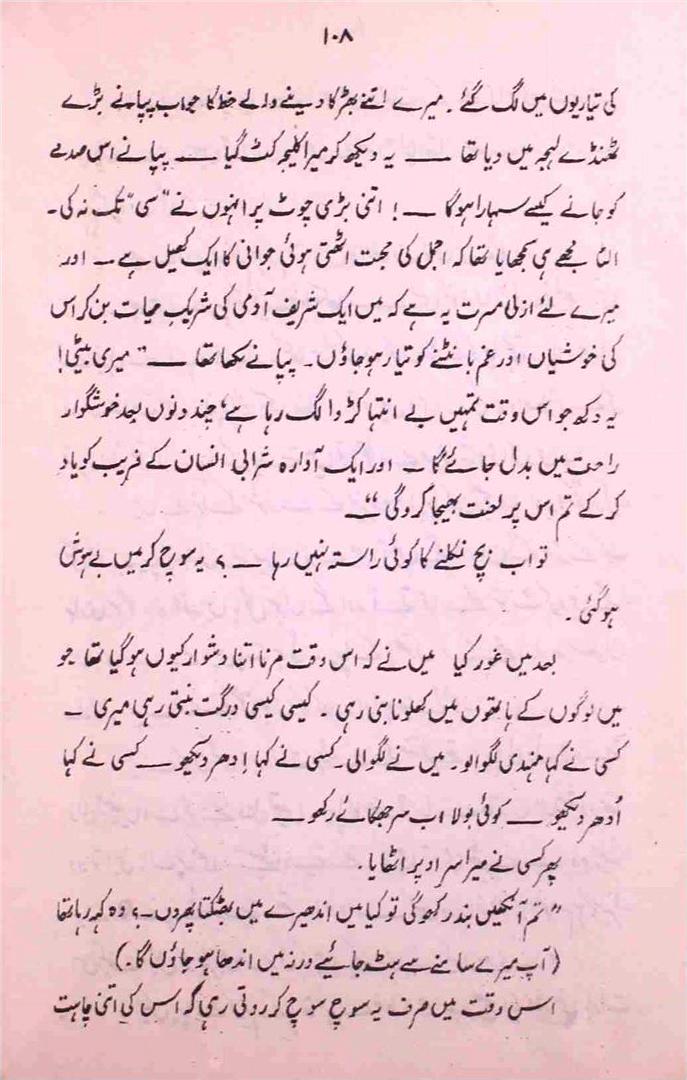 ۱۰۸
کی تیاریوں میں لگ گئے ۔ میرے اتنے بھڑکا دینے والے خط کا جواب پپا نے بڑے
ٹھنڈے لہجہ میں دیا تھا ــــ یہ دیکھ کر میرا کلیجہ کٹ گیا ــــ پپا نے اس صدمے
کو جانے کیسے سہارا ہوگا ــــ ! اتنی بڑی چوٹ پر انہوں نے "سی" تک نہ کی ۔
الٹا مجھے ہی سمجھایا تھا کہ اجمل کی محبت اٹھتی ہوئی جوانی کا ایک کھیل ہے ــ اور
میرے لئے ازلی مسرت یہ ہے کہ میں ایک شریف آدمی کی شریکِ حیات بن کر اس
کی خوشیاں اور غم بانٹنے کو تیار ہو جاؤں ۔ پپا نے لکھا تھا ــــ "میری بیٹی!
یہ دکھ جو اس وقت تمہیں بے انتہا کڑوا لگ رہا ہے، چند دنوں بعد خوشگوار
راحت میں بدل جائے گا ــ اور ایک آوارہ شرابی انسان کے فریب کو یاد
کر کے تم اس پر لعنت بھیجا کرو گی" ــــ
تو اب بچ نکلنے کا کوئی راستہ نہیں رہا ــــ ؟ یہ سوچ کر میں بے ہوش
ہو گئی ۔
بعد میں غور کیا میں نے کہ اس وقت مرنا اتنا دشوار کیوں ہو گیا تھا جو
میں لوگوں کے ہاتھوں میں کھلونا بنی رہی ۔ کیسی کیسی درگت بنتی رہی میری ــ
کسی نے کہا مہندی لگوالو ۔ میں نے لگوالی ۔ کسی نے کہا اِدھر دیکھو ــــ کسی نے کہا
اُدھر دیکھو ــــ کوئی بولا اب سر جھکائے رکھو ــــ
پھر کسی نے میرا سر اوپر اٹھایا ۔
"تم آنکھیں بند رکھو گی تو کیا میں اندھیرے میں بھٹکتا پھروں ــ ؟ وہ کہہ رہا تھا
(آپ میرے سامنے سے ہٹ جائیے ورنہ میں اندھا ہو جاؤں گا ۔)
اس وقت میں صرف یہ سوچ سوچ کر روتی رہی کہ اس کی اتنی چاہت